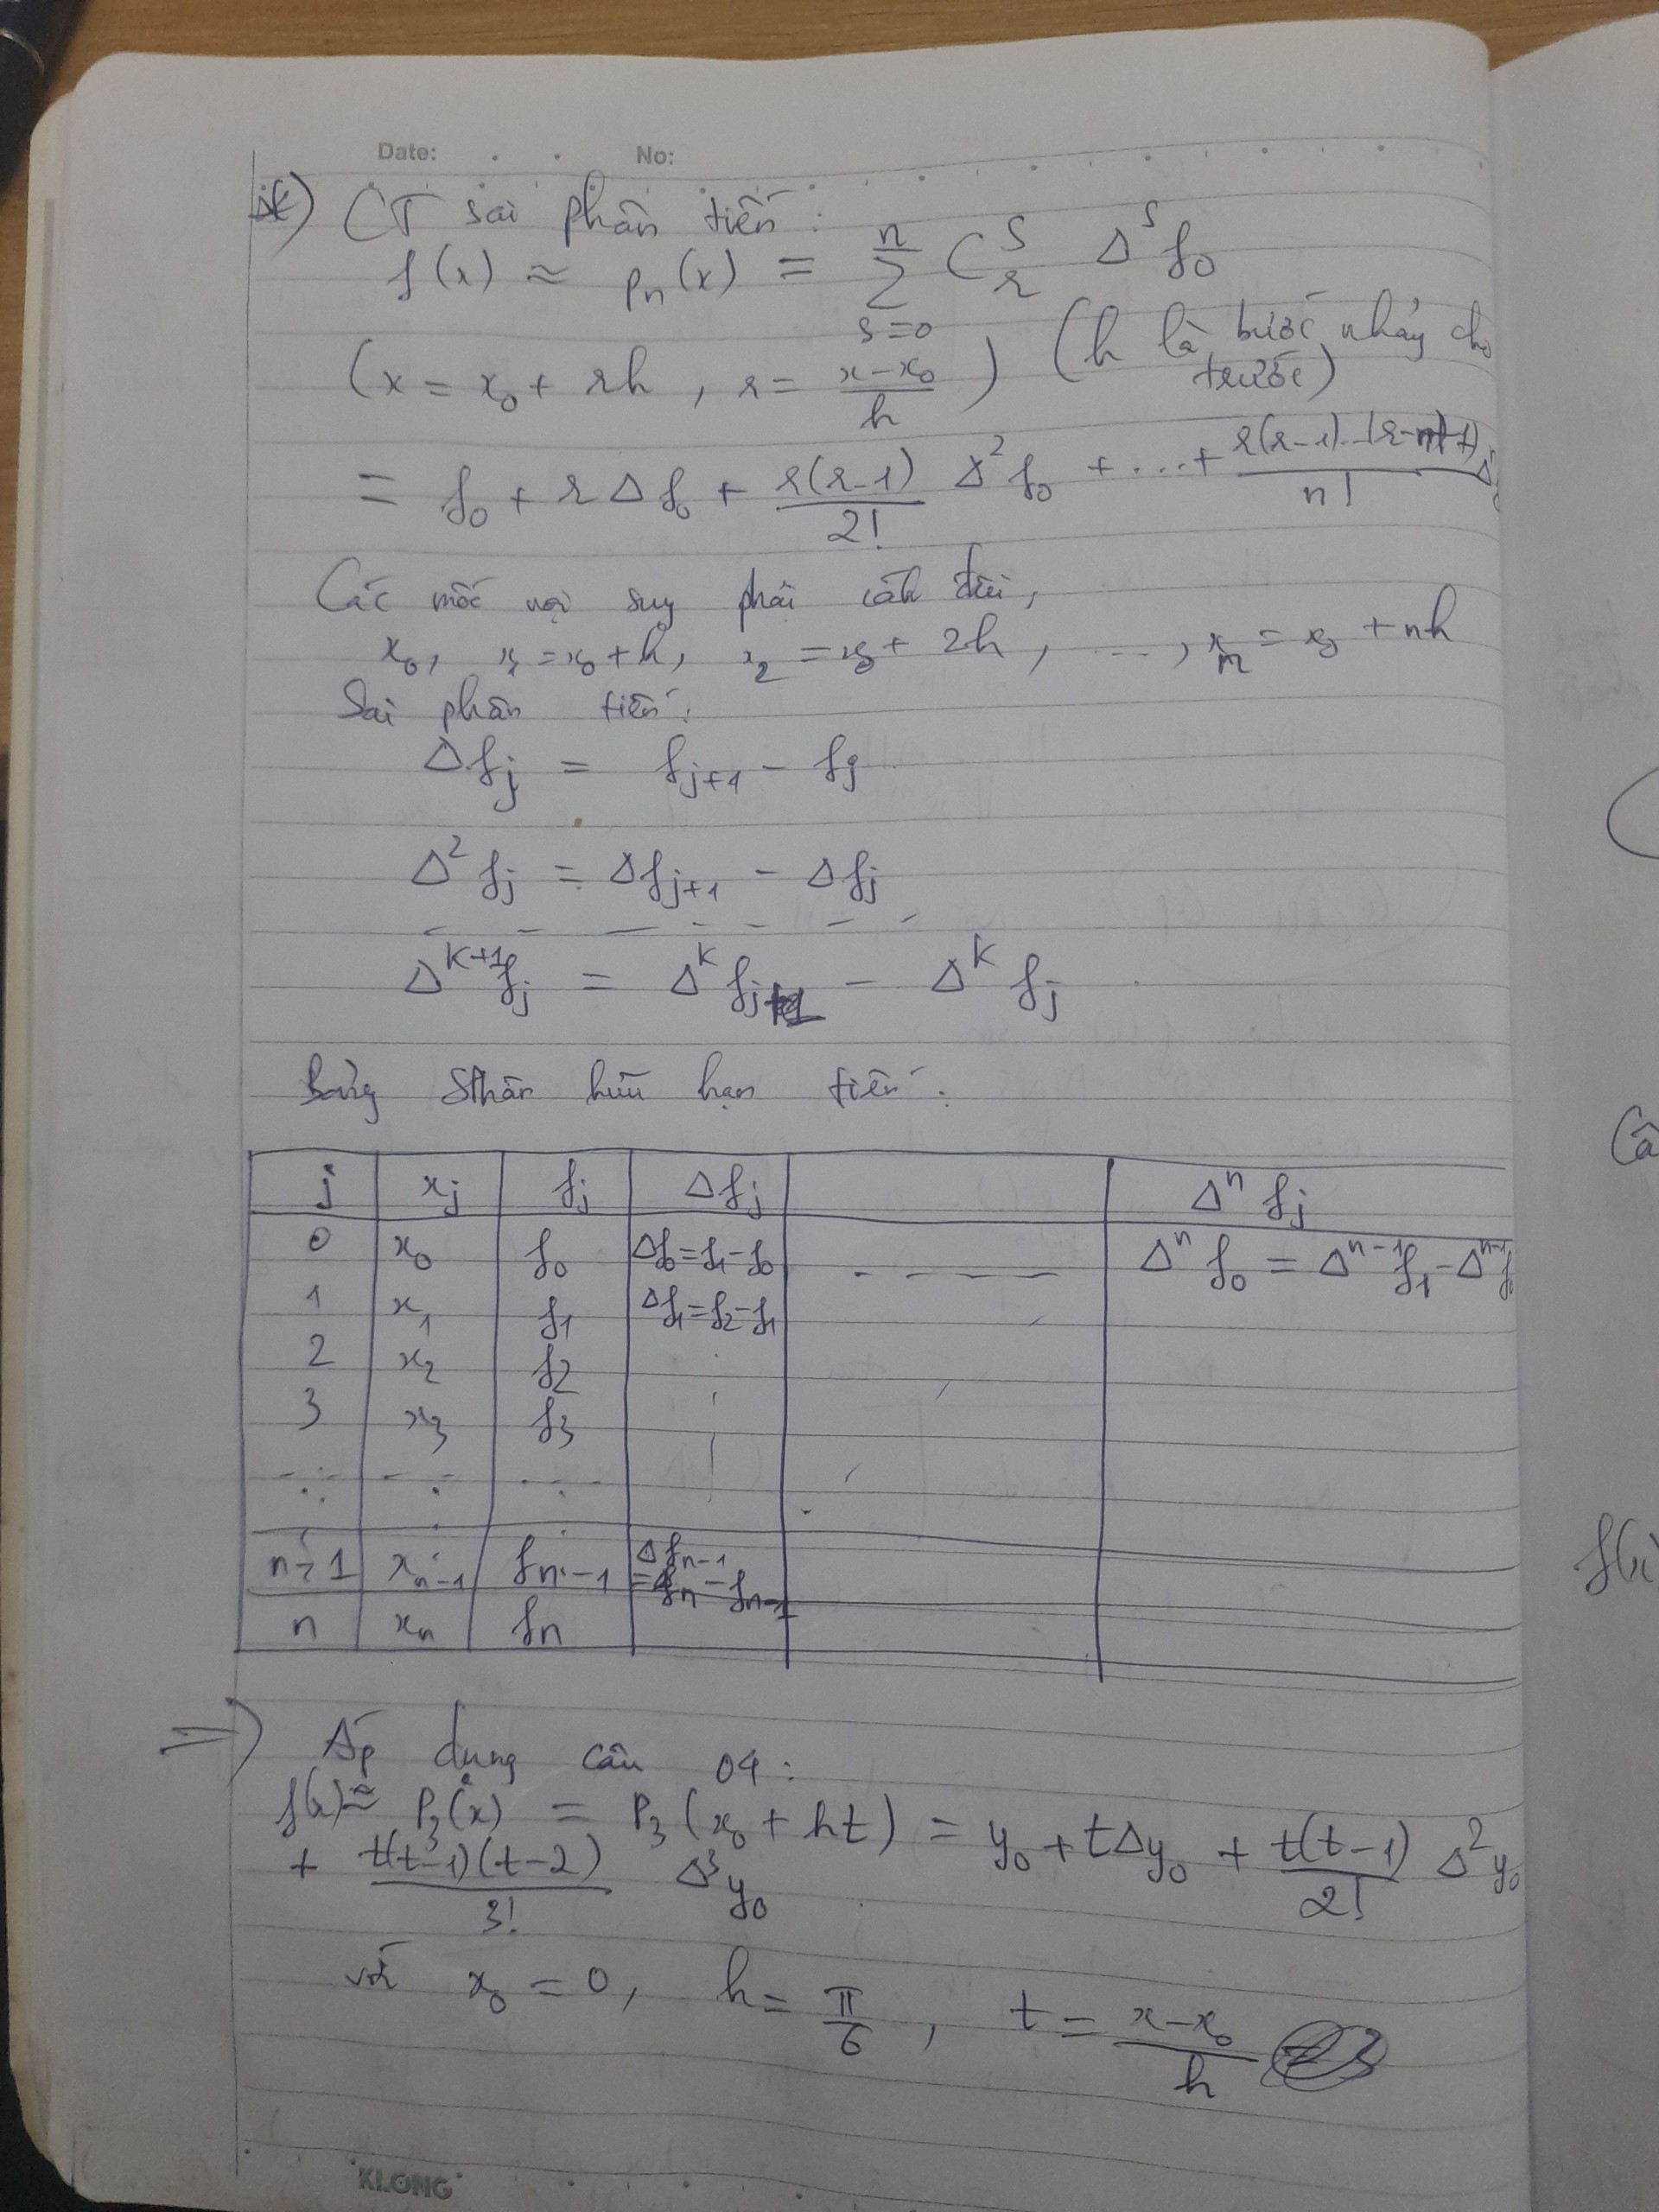 Date: . . No:
*) CT sai phân tiến:
f(x) ≈ pn(x) = Σ_{s=0}^{n} C_r^s Δ^s f0
(x = x0 + rh, r = (x-x0)/h) (h là bước nhảy cho trước)
= f0 + rΔf0 + r(r-1)/2! Δ²f0 + ... + r(r-1)...(r-n+1)/n! Δ
Các mốc nội suy phải cách đều,
x0, x1 = x0 + h, x2 = x0 + 2h, ..., xn = x0 + nh
Sai phân tiến:
Δfj = fj+1 - fj
Δ²fj = Δfj+1 - Δfj
Δ^{k+1}fj = Δ^k fj+1 - Δ^k fj
Bảng Sphân hữu hạn tiến:
j xj fj Δfj Δ^n fj
0 x0 f0 Δf0 = f1 - f0 ---- Δ^n f0 = Δ^{n-1}f1 - Δ^{n-1}f0
1 x1 f1 Δf1 = f2 - f1
2 x2 f2
3 x3 f3
n-1 xn-1 fn-1 Δfn-1 = fn - fn-1
n xn fn
=> Áp dụng câu 04:
f(x) ≈ P3(x) = P3(x0 + ht) = y0 + tΔy0 + t(t-1)/2! Δ²y0
+ t(t-1)(t-2)/3! Δ³y0
với x0 = 0, h = π/6, t = (x-x0)/h
KLONG
Câ
f(x)